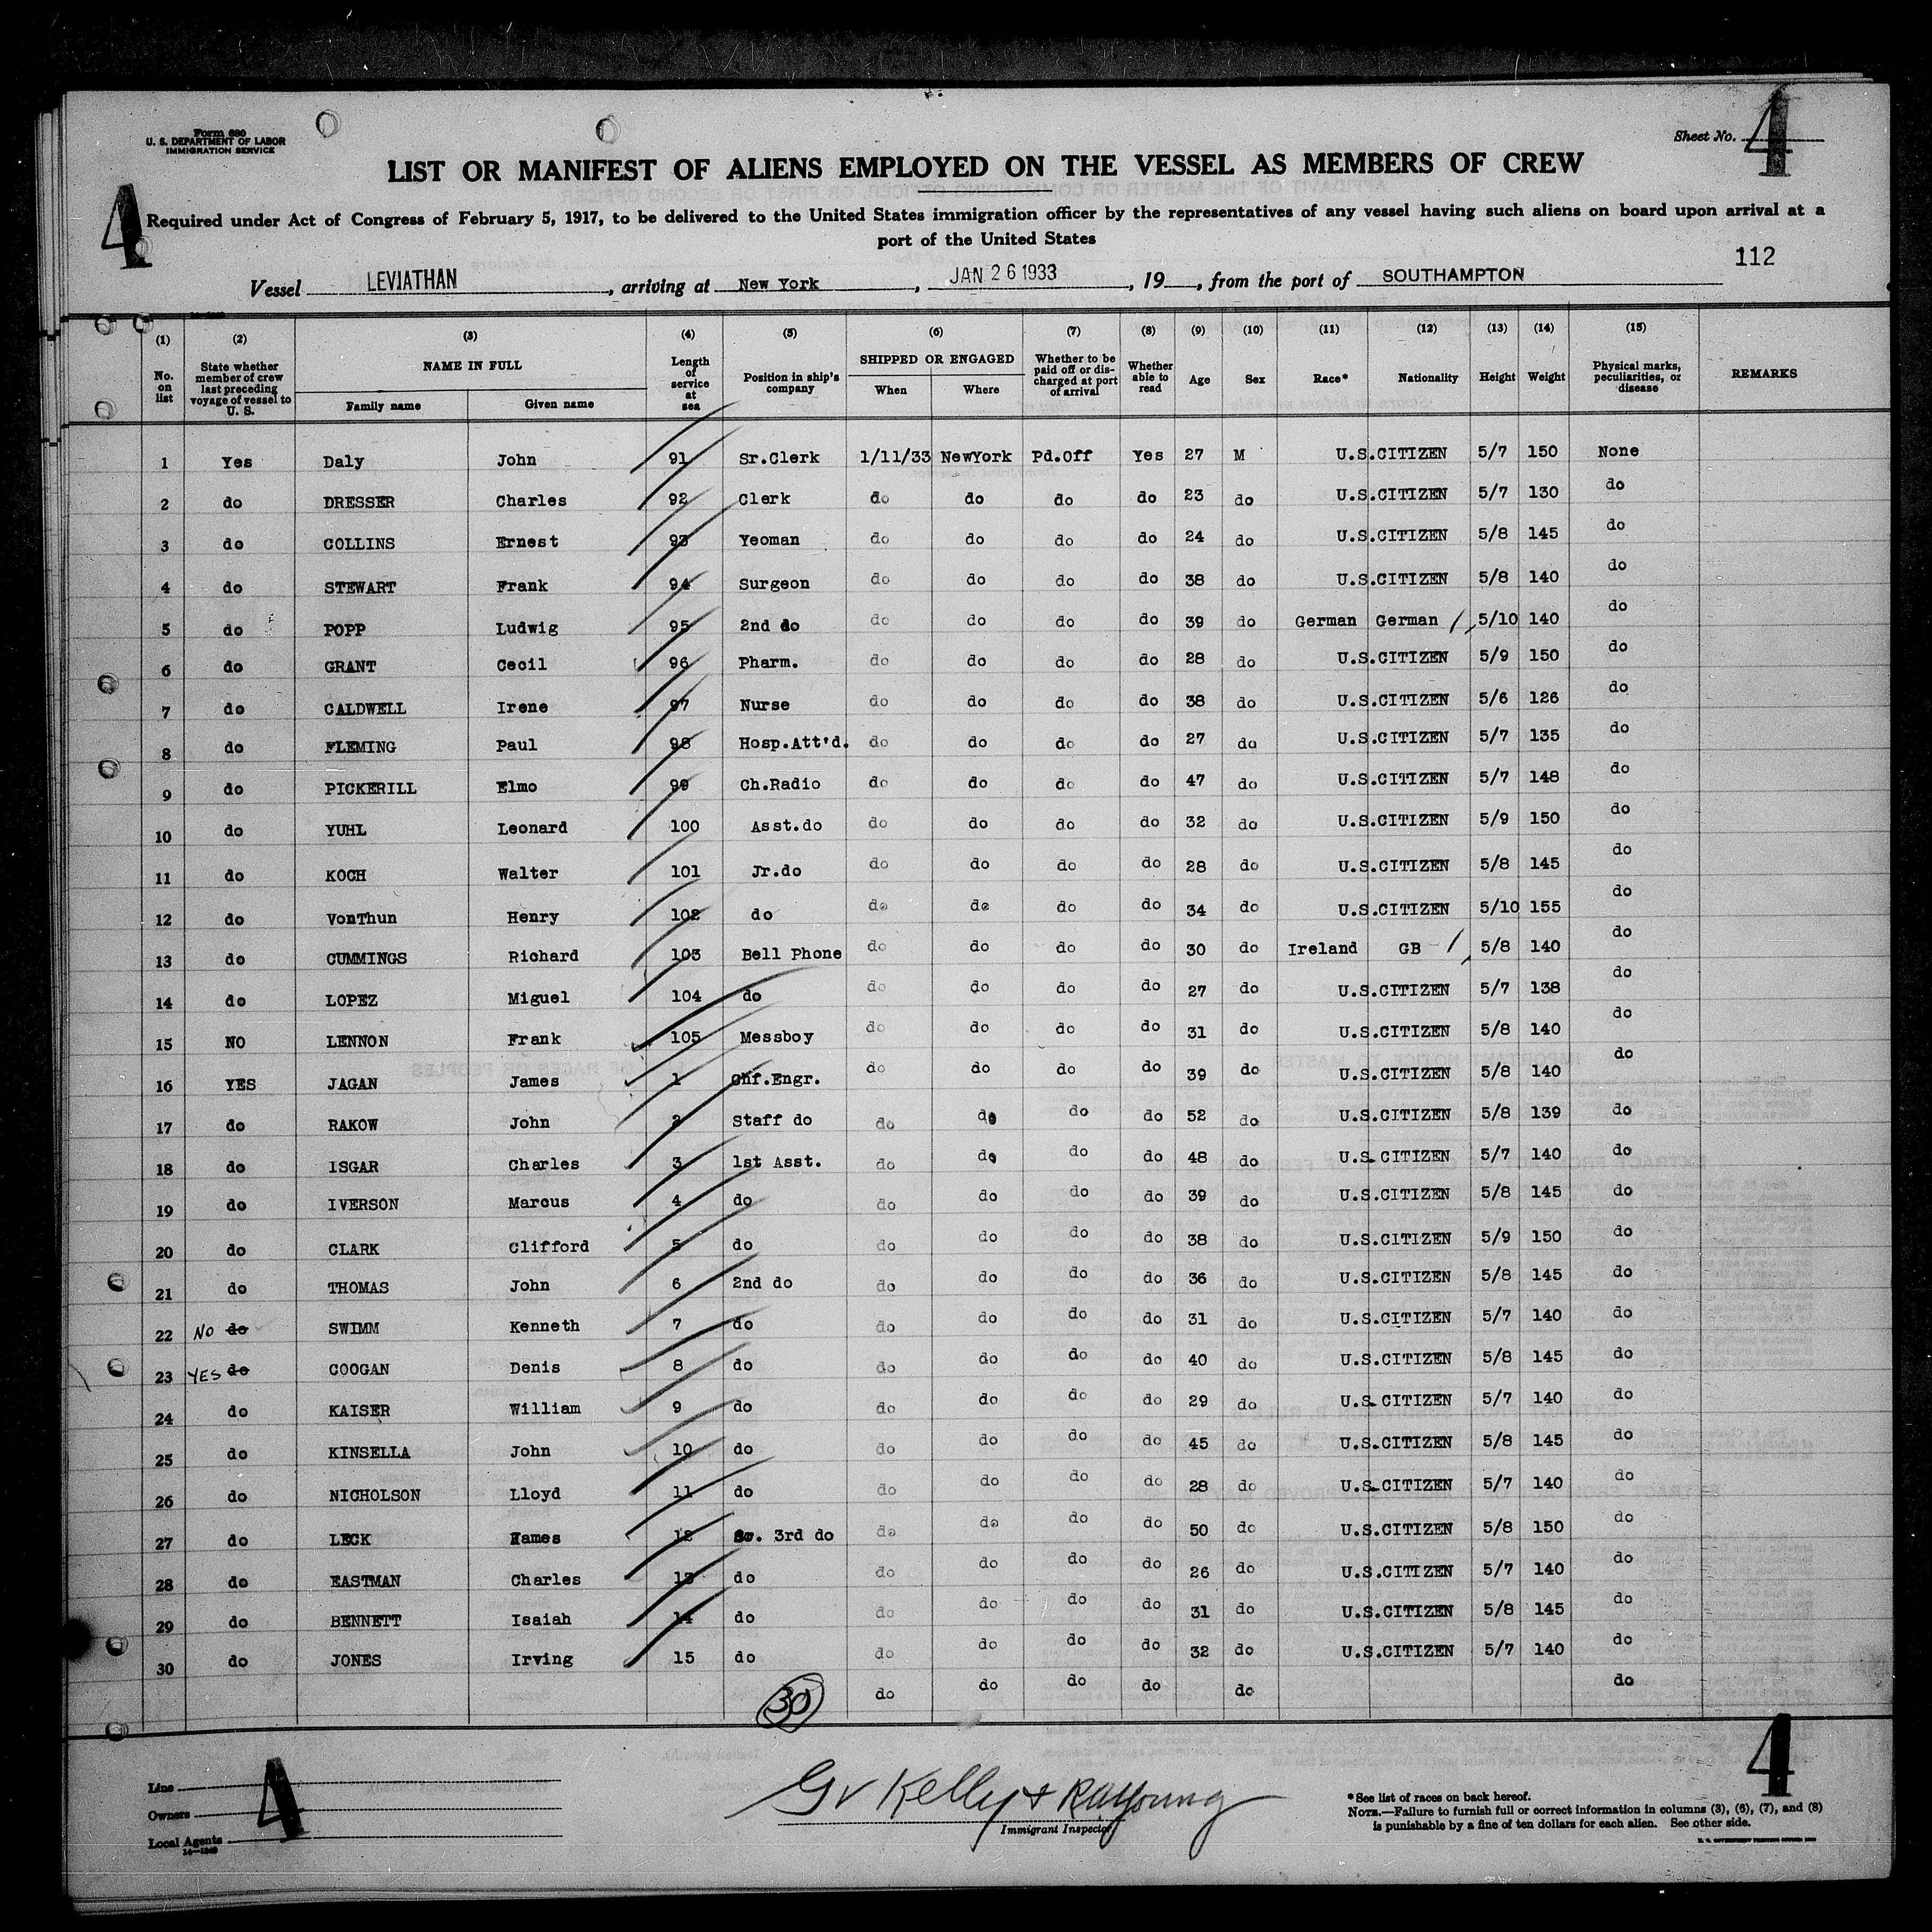 Form 680
U. S. DEPARTMENT OF LABOR
IMMIGRATION SERVICE
Sheet No. 4
4
LIST OR MANIFEST OF ALIENS EMPLOYED ON THE VESSEL AS MEMBERS OF CREW
Required under Act of Congress of February 5, 1917, to be delivered to the United States immigration officer by the representatives of any vessel having such aliens on board upon arrival at a
port of the United States
112
Vessel LEVIATHAN, arriving at New York, JAN 26 1933, 19, from the port of SOUTHAMPTON
(1) (2) (3) (4) (5) (6) (7) (8) (9) (10) (11) (12) (13) (14) (15)
No. on list State whether member of crew last preceding voyage of vessel to U. S. NAME IN FULL Family name Given name Length of service at sea Position in ship's company SHIPPED OR ENGAGED When Where Whether to be paid off or discharged at port of arrival Whether able to read Age Sex Race* Nationality Height Weight Physical marks, peculiarities, or disease REMARKS
1 Yes Daly John 91 Sr.Clerk 1/11/33 NewYork Pd.Off Yes 27 M U.S.CITIZEN 5/7 150 None
2 do DRESSER Charles 92 Clerk do do do do 23 do U.S.CITIZEN 5/7 130 do
3 do COLLINS Ernest 93 Yeoman do do do do 24 do U.S.CITIZEN 5/8 145 do
4 do STEWART Frank 94 Surgeon do do do do 38 do U.S.CITIZEN 5/8 140 do
5 do POPP Ludwig 95 2nd do do do do do 39 do German German 5/10 140 do
6 do GRANT Cecil 96 Pharm. do do do do 28 do U.S.CITIZEN 5/9 150 do
7 do CALDWELL Irene 97 Nurse do do do do 38 do U.S.CITIZEN 5/6 126 do
8 do FLEMING Paul 98 Hosp.Att'd. do do do do 27 do U.S.CITIZEN 5/7 135 do
9 do PICKERILL Elmo 99 Ch.Radio do do do do 47 do U.S.CITIZEN 5/7 148 do
10 do YUHL Leonard 100 Asst.do do do do do 32 do U.S.CITIZEN 5/9 150 do
11 do KOCH Walter 101 Jr.do do do do do 28 do U.S.CITIZEN 5/8 145 do
12 do VonThun Henry 102 do do do do do 34 do U.S.CITIZEN 5/10 155 do
13 do CUMMINGS Richard 103 Bell Phone do do do do 30 do Ireland GB 5/8 140 do
14 do LOPEZ Miguel 104 do do do do do 27 do U.S.CITIZEN 5/7 138 do
15 NO LENNON Frank 105 Messboy do do do do 31 do U.S.CITIZEN 5/8 140 do
16 YES JAGAN James 1 Chf.Engr. do do do do 39 do U.S.CITIZEN 5/8 140 do
17 do RAKOW John 2 Staff do do do do do 52 do U.S.CITIZEN 5/8 139 do
18 do ISGAR Charles 3 1st Asst. do do do do 48 do U.S.CITIZEN 5/7 140 do
19 do IVERSON Marcus 4 do do do do do 39 do U.S.CITIZEN 5/8 145 do
20 do CLARK Clifford 5 do do do do do 38 do U.S.CITIZEN 5/9 150 do
21 do THOMAS John 6 2nd do do do do do 36 do U.S.CITIZEN 5/8 145 do
22 NO do SWIMM Kenneth 7 do do do do do 31 do U.S.CITIZEN 5/7 140 do
23 YES do COOGAN Denis 8 do do do do do 40 do U.S.CITIZEN 5/8 145 do
24 do KAISER William 9 do do do do do 29 do U.S.CITIZEN 5/7 140 do
25 do KINSELLA John 10 do do do do do 45 do U.S.CITIZEN 5/8 145 do
26 do NICHOLSON Lloyd 11 do do do do do 28 do U.S.CITIZEN 5/7 140 do
27 do LECK James 12 Sr. 3rd do do do do do 50 do U.S.CITIZEN 5/8 150 do
28 do EASTMAN Charles 13 do do do do do 26 do U.S.CITIZEN 5/7 140 do
29 do BENNETT Isaiah 14 do do do do do 31 do U.S.CITIZEN 5/8 145 do
30 do JONES Irving 15 do do do do do 32 do U.S.CITIZEN 5/7 140 do
30 do do do do do do
Line
Owners
Local Agents
14—1240
4
Gv Kelly + RaYoung
Immigrant Inspector
4
*See list of races on back hereof.
NOTE.—Failure to furnish full or correct information in columns (3), (6), (7), and (8)
is punishable by a fine of ten dollars for each alien. See other side.